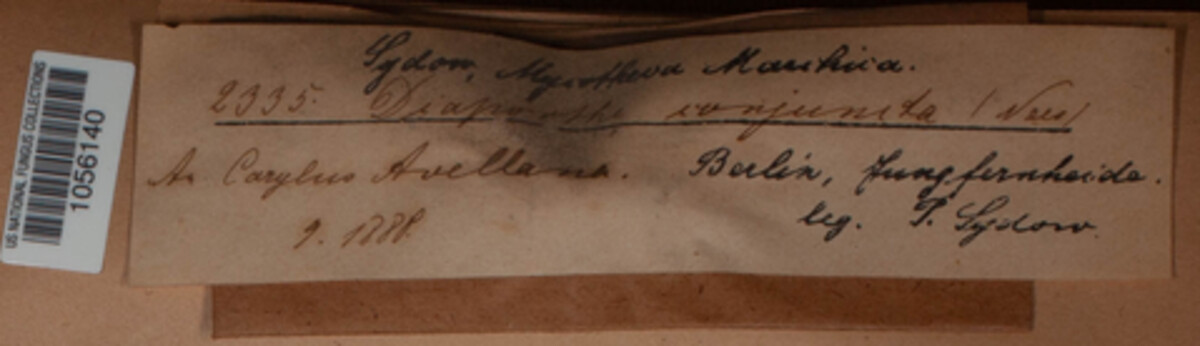 US NATIONAL FUNGUS COLLECTIONS
1056140
Sydow, Mycotheca Marchica.
2335. Diaporthe conjuncta (Nees)
An Corylus Avellana. Berlin, Jungfernheide.
9. 1888. leg. P. Sydow.